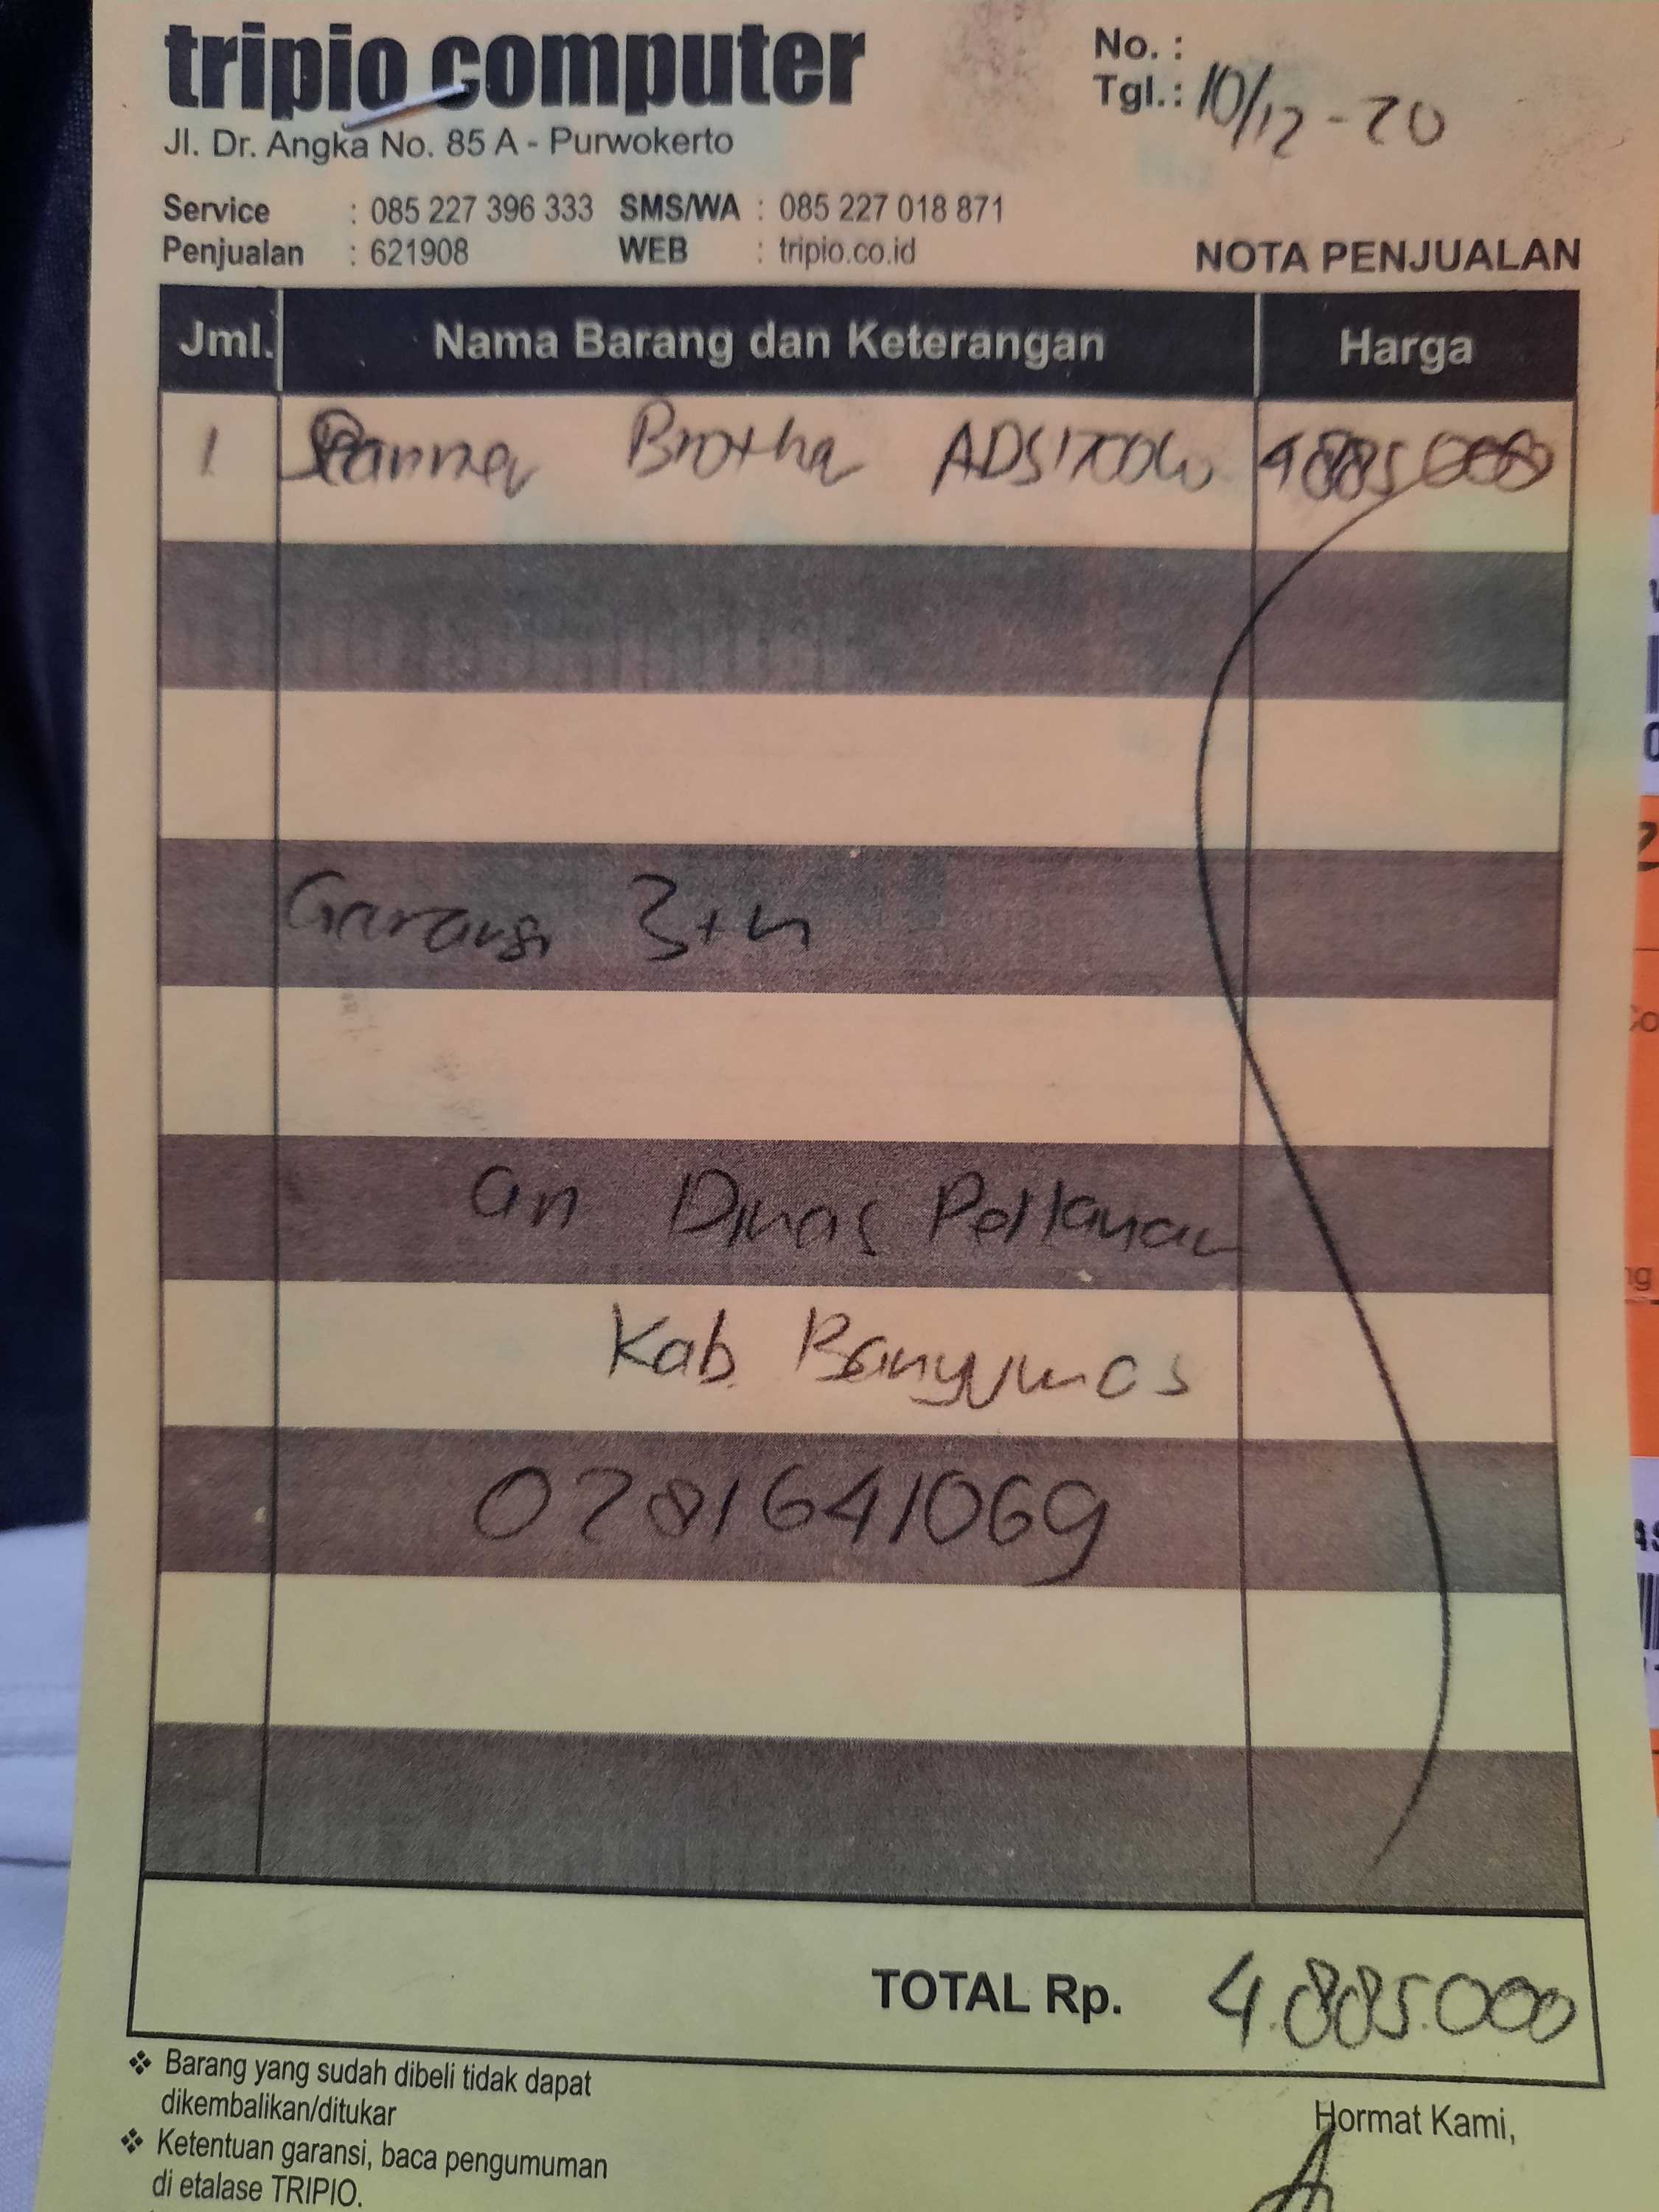 tripio computer
Jl. Dr. Angka No. 85 A - Purwokerto
No. :
Tgl.: 10/12 - 20
Service : 085 227 396 333 SMS/WA : 085 227 018 871
Penjualan : 621908 WEB : tripio.co.id
NOTA PENJUALAN
Jml. Nama Barang dan Keterangan Harga
1 Scanner Brother ADS1700W 4885000
Garansi 3th
an Dinas
Kab. Banyumas
0281641069
TOTAL Rp. 4.885.000
❖ Barang yang sudah dibeli tidak dapat
dikembalikan/ditukar
❖ Ketentuan garansi, baca pengumuman
di etalase TRIPIO.
Hormat Kami,